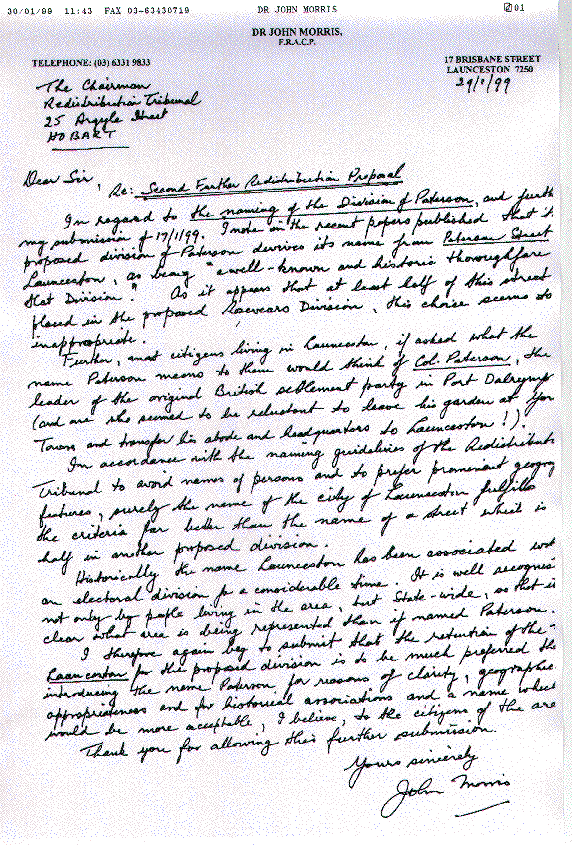 30/01/99 11:43 FAX 03-63430719 DR JOHN MORRIS 01
DR JOHN MORRIS,
F.R.A.C.P.
TELEPHONE: (03) 6331 9833
17 BRISBANE STREET
LAUNCESTON 7250
29/1/99
The Chairman
Redistribution Tribunal
25 Argyle Street
HOBART
Dear Sir,
Re: Second Further Redistribution Proposal
In regard to the naming of the Division of Paterson, and furth
my submission of 17/1/99. I note in the recent papers published that it
proposed division of Paterson derives its name from Paterson Street
Launceston, as being "a well-known and historic thoroughfare
that Division." As it appears that at least half of this street
placed in the proposed Division, this choice seems to
inappropriate.
Further, most citizens living in Launceston, if asked what the
name Paterson means to them would think of Col. Paterson, the
leader of the original British settlement party in Port Dalrymp
(and one who seemed to be reluctant to leave his garden at Yor
Town and transfer his abode and headquarters to Launceston!).
In accordance with the naming guidelines of the Redistributi
Tribunal to avoid names of persons and to prefer prominent geog
features, surely the name of the city of Launceston fulfills
the criteria far better than the name of a street which is
half in another proposed division.
Historically the name Launceston has been associated wit
an electoral division for a considerable time. It is well recognis
not only by people living in the area, but State-wide, so that is
clear what area is being represented than if named Paterson.
I therefore again beg to submit that the retention of the
Launceston for the proposed division is to be much preferred the
introducing the name Paterson for reasons of clarity, geographic
appropriateness and for historical associations and a name which
would be more acceptable, I believe, to the citizens of the are
Thank you for allowing this further submission.
Yours sincerely
John Morris